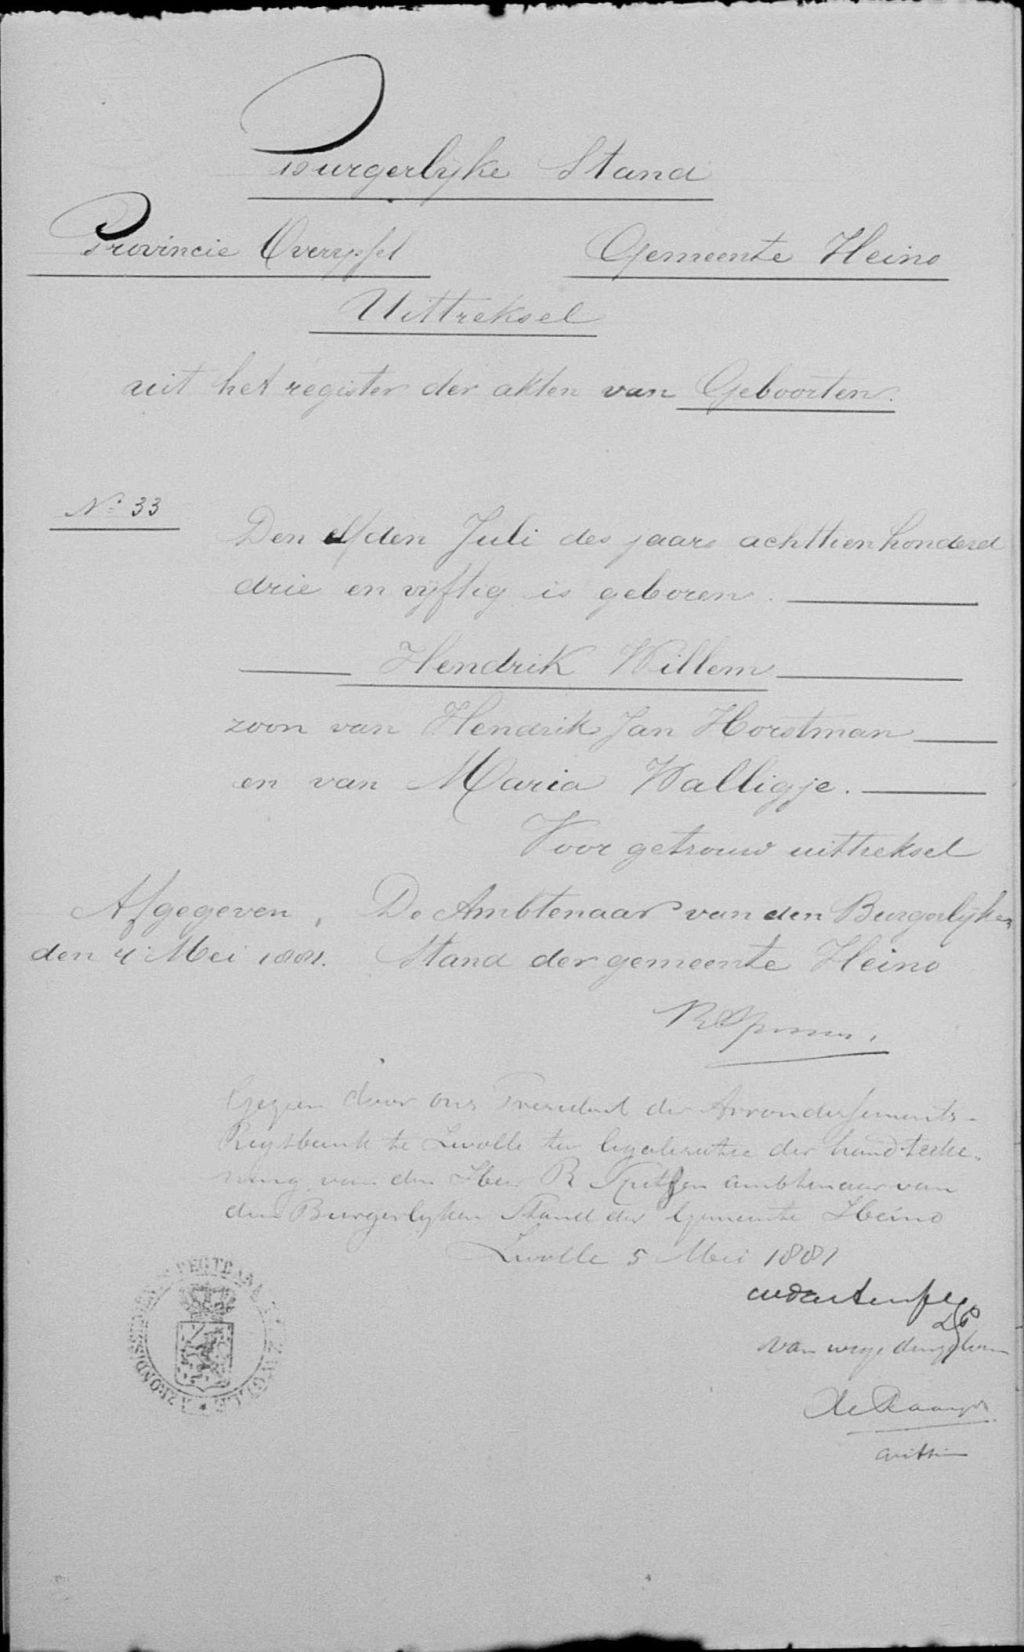 Burgerlyke Stand
Provincie Overyssel
Gemeente Heino
Uittreksel
uit het register der akten van Geboorten.
No. 33
Den elfden Juli des jaars achttienhonderd
drie en vyftig is geboren.
Hendrik Willem
zoon van Hendrik Jan Horstman
en van Maria Walligje.
Voor getrouw uittreksel
Afgegeven,
den 4 Mei 1881.
De Ambtenaar van den Burgerlyken
Stand der gemeente Heino
Gezien door ons President der Arrondissements-
Regtbank te Zwolle ter legalisatie der handteeke-
ning van den Heer R Spitzen ambtenaar van
den Burgerlyken Stand der Gemeente Heino
Zwolle 5 Mei 1881
van wege denzelven
griffier